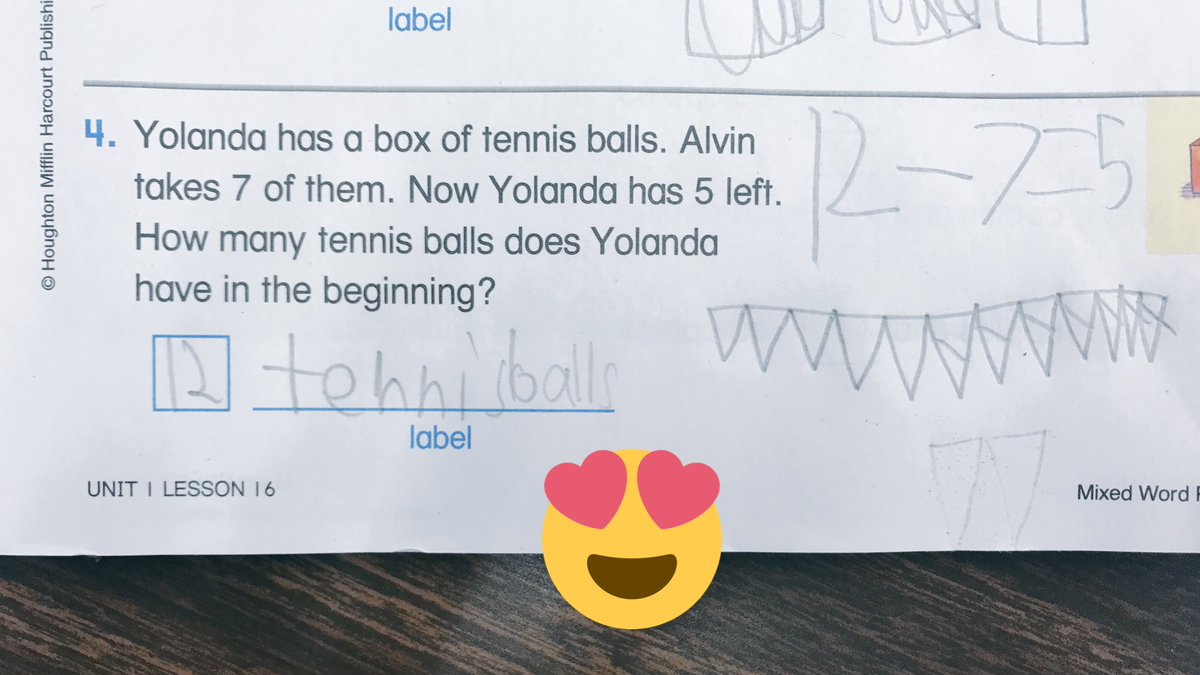 © Houghton Mifflin Harcourt Publishi
label
4. Yolanda has a box of tennis balls. Alvin
takes 7 of them. Now Yolanda has 5 left.
How many tennis balls does Yolanda
have in the beginning?
12-7=5
12 tennisballs
label
UNIT 1 LESSON 16
Mixed Word